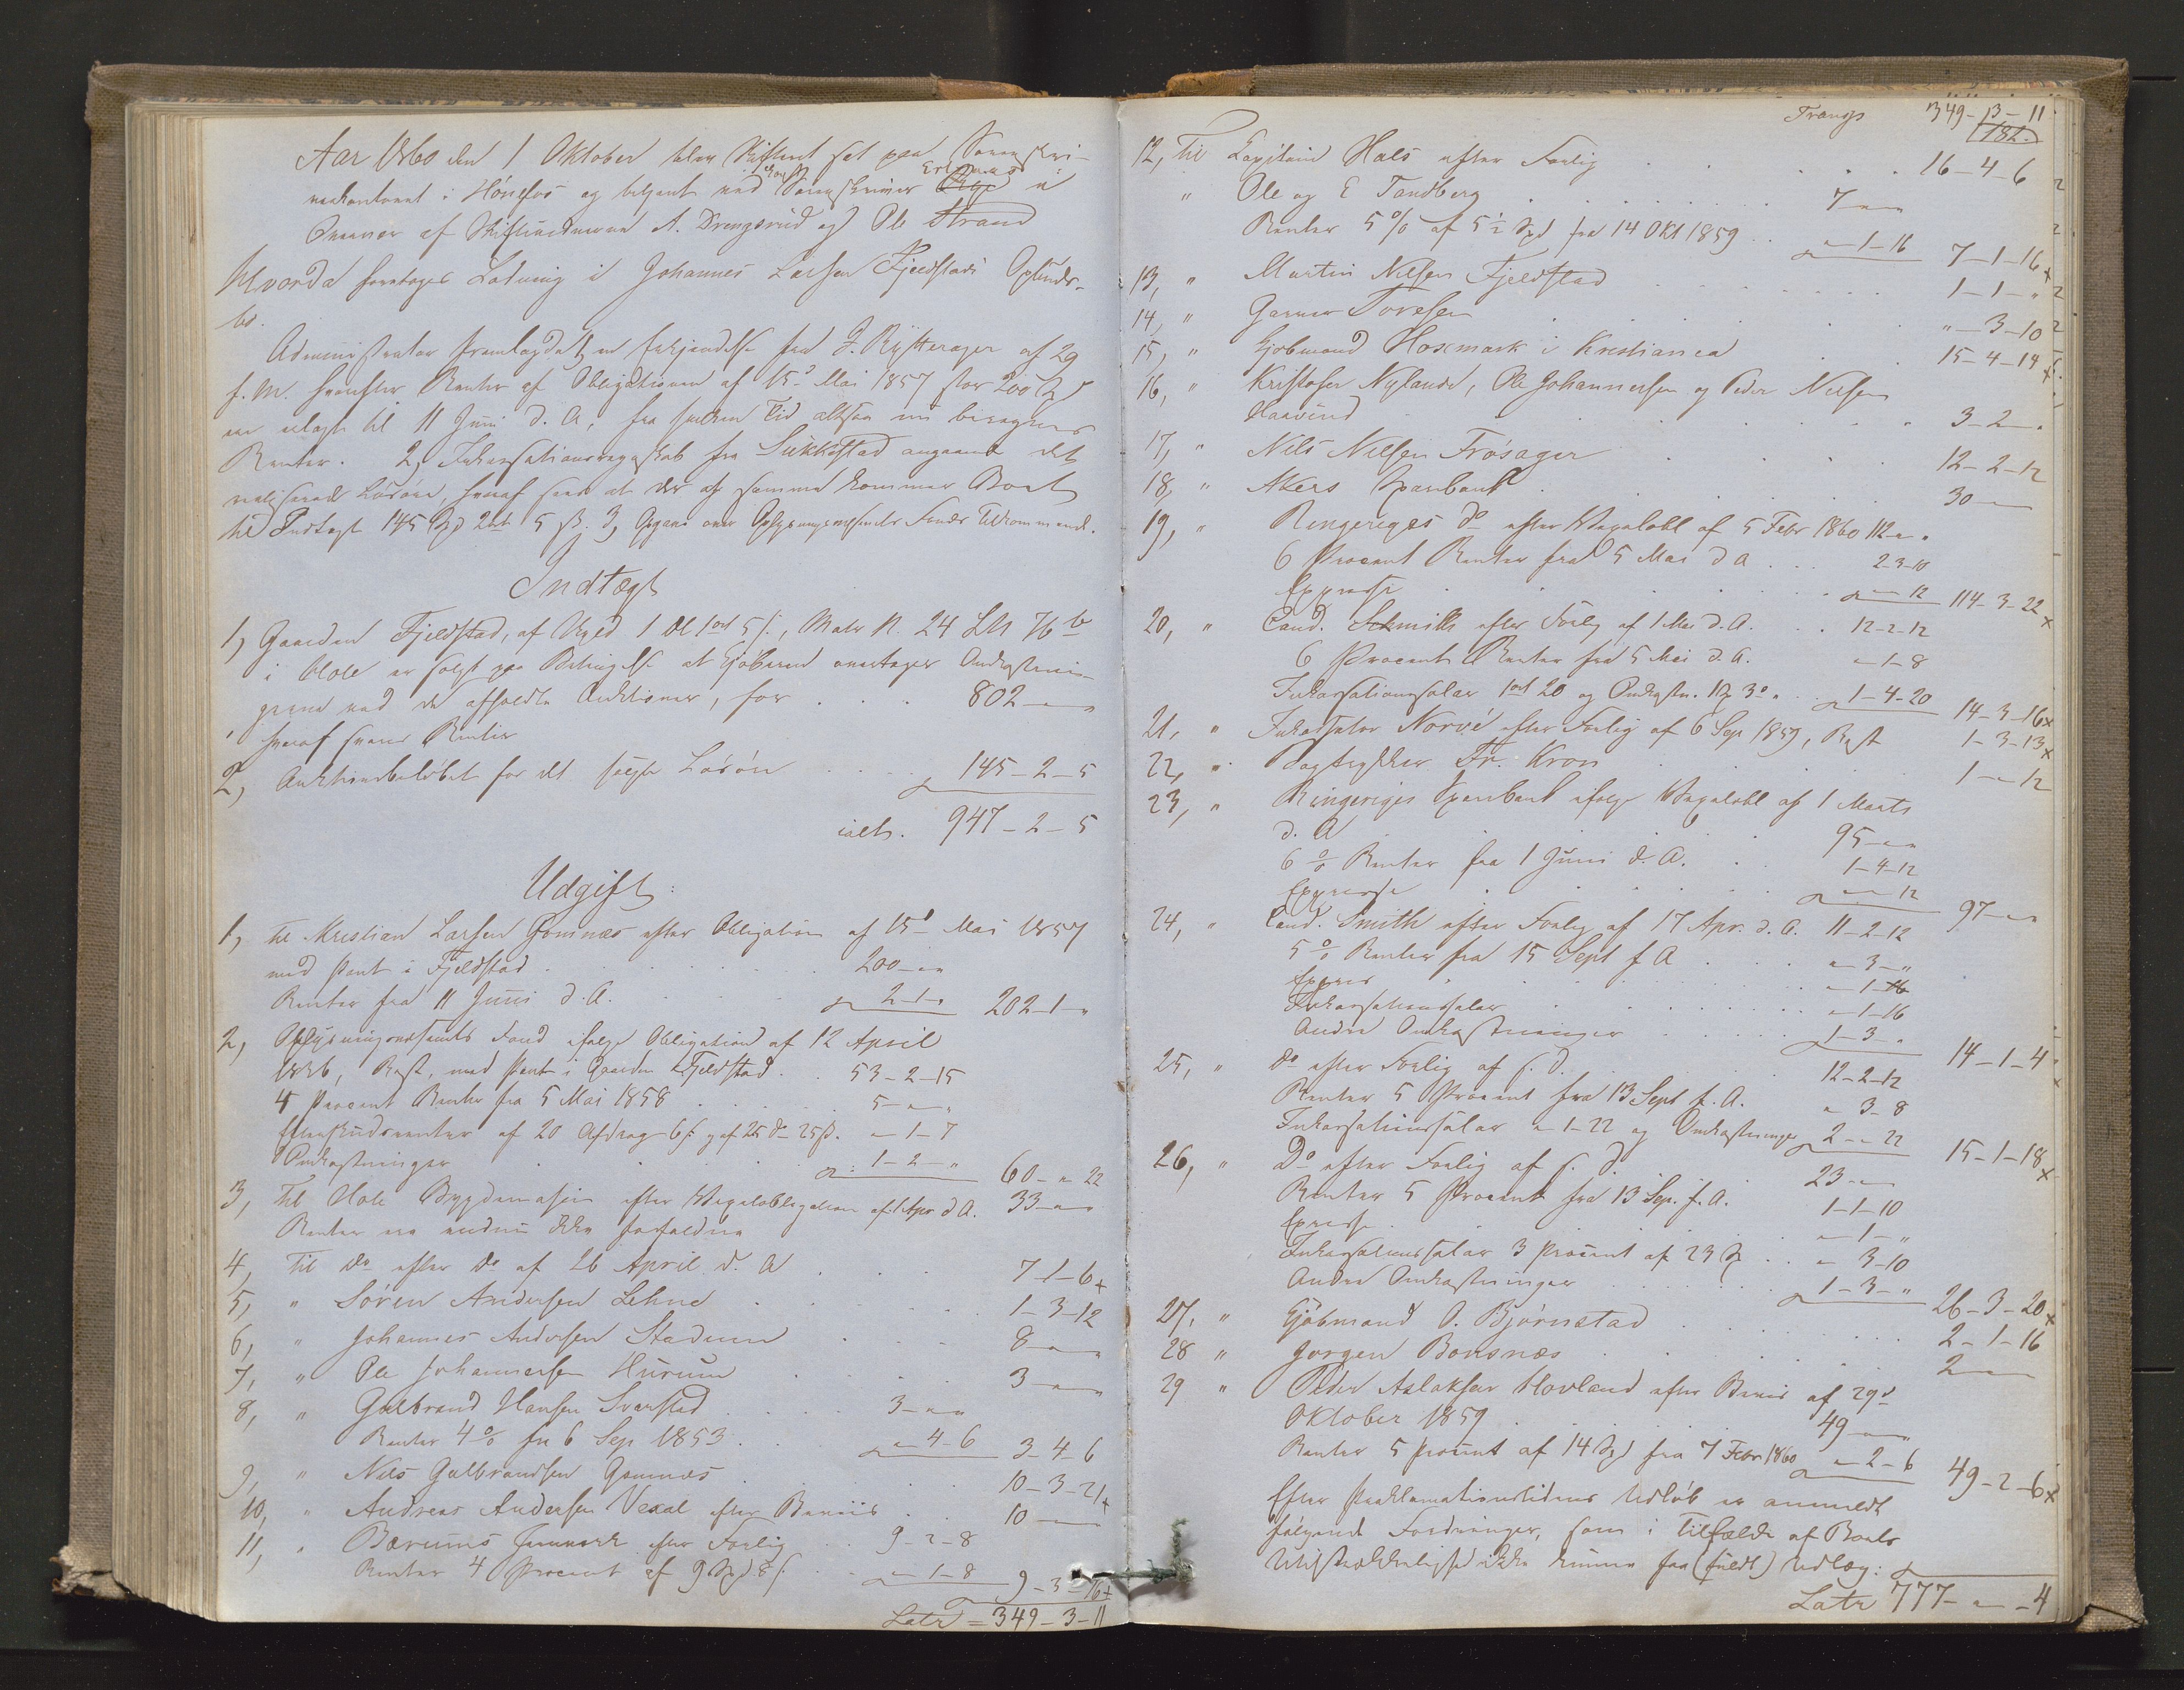 Aar 1860 den 1 Oktober blev Skifteret sat paa Sorenskri-
verkontoret i Hønefos og betjent ved const. Sorenskriver Erlsrues i
Overvær af Skiftevidnerne A. Drengsrud og Ole Strand
Hvorda foretoges Lodning i Johannes Larsen Fjeldstads Opbuds-
bo.
Administrator fremlagde 1, en Erkjendelse fra J. Rytterager af 29
f. M. hvorefter Renter af Obligationen af 15de Mai 1857 stor 200 Spd
er erlagt til 11 Juni d. A., fra hvilken Tid altsaa nu beregnes
Renter. 2, Inkassationsregnskab fra Sukkestad angaaende det
realiserede Løsøre, hvoraf sees at der af samme kommer Boet
til Indtægt 145 Spd 2 ort 5 sk. 3, Opgave over Oplysningsvæsenets Fonds Tilkommende.
Indtægt
1, Gaarden Fjeldstad, af Skyld 1 Dl 1 ort 5 s., Matr N. 24 LN 76 b
i Hole er solgt paa Betingelse at Kjøberen overtager Omkostnin-
gerne ved de afholdte Auktioner, for . . . 802 - " - "
hvoraf svares Renter
2, Auktionsbeløbet for det solgte Løsøre . . . 145 - 2 - 5
ialt. 947 - 2 - 5
Udgift:
1, Til Kristian Larsen Gomnæs efter Obligation af 15de Mai 1857
med Pant i Fjeldstad . . . 200 - " - "
Renter fra 11 Juni d. A. . . . 2 - 1 - " 202 - 1 - "
2, Oplysningsvæsenets Fond ifølge Obligation af 12 April
1826, Rest, med Pant i Gaarden Fjeldstad . . 53 - 2 - 15
4 Procent Renter fra 5 Mai 1858 . . . 5 - " - "
af 20 Afdrag 6 s. og af 25 do 25 s. " - 1 - 7
Omkostninger . . . 1 - 2 - " 60 - " - 22
3, Til Hole Bygdemagasin efter Vexelobligation af 1 Apr d A. 33 - " - "
Renter ere endnu ikke forfaldne
4, Til do efter do af 26 April d. A . . . 7 - 1 - 6 +
5, " Søren Andersen Lehne . . . 1 - 3 - 12
6, " Johannes Andersen Stadum . . . 8 - " - "
7, " Ole Johannesen Hurum . . . 3 - " - "
8, " Gulbrand Hansen Svarstad . . . 3 - " - "
Renter 4 % fra 6 Sep 1853 . . " - 4 - 6 3 - 4 - 6
9, " Nils Gulbrandsen Gomnæs . . . 10 - 3 - 21 +
10, " Andreas Andersen Vexal efter Beviis . . 10 - " - "
11, " Bærums Jernværk efter Forlig . . 9 - 2 - 8
Renter 4 Procent af 9 Spd 8 s. . . " - 1 - 8 9 - 3 - 16 +
Latr = 349 - 3 - 11
Transp 349 - 3 - 11
182.
12, Til Kapitain Hals efter Forlig . . . 16 - 4 - 6
" Ole og E Tandberg . . . 7 - " - "
Renter 5 % af 5 ½ Spd fra 14 Okt 1859 . . " - 1 - 16 7 - 1 - 16 +
13, " Martin Nilsen Fjeldstad . . . 1 - 1 - "
14, " Garver Toresen . . . " - 3 - 10
15, " Kjøbmand Hoxmark i Kristiania . . . 15 - 4 - 14 +
16, " Kristofer Nylande, Ole Johannesen og Peder Nilsen
Haavind . . . 3 - 2 - "
17, " Nils Nilsen Frøsager . . . 12 - 2 - 12
18, " Akers Sparebank . . . 30 - "
19, " Ringeriges do efter Vexelobl af 5 Febr 1860 112 - " - "
6 Procent Renter fra 5 Mai d A . . . 2 - 3 - 10
Expresse . . . " - " - 12 114 - 3 - 22 +
20, " Cand. Schmith efter Forlig af 1 Mai d. A. . . 12 - 2 - 12
6 Procent Renter fra 5 Mai d. A. " - 1 - 8
Inkassationssalar 1 ort 20 og Omkostn. 1 Spd 3 o " . . 1 - 4 - 20 14 - 3 - 16 +
21, " Inkassator Norvé efter Forlig af 6 Sep 1859, Rest 1 - 3 - 13 +
22, " Bogtrykker Fr. Kron . . . 1 - " - 12
23, " Ringeriges Sparebank ifølge Vexelobl af 1 Marts
d. A . . . 95 - " - "
6 % Renter fra 1 Juni d. A. . 1 - 4 - 12
Expresse . . . " - " - 12 97 - " - "
24, " Cand. Smith efter Forlig af 17 Apr. d. A. 11 - 2 - 12
5 % Renter fra 15 Sept f A . . . " - 3 - "
Expres . . . " - 1 - 16
Inkassationssalar . . . " - 1 - 16
Andre Omkostninger . . . 1 - 3 - " 14 - 1 - 4
25, " do efter Forlig af s. D. . . . 12 - 2 - 12
Renter 5 Procent fra 13 Sept f. A. " - 3 - 8
Inkassationssalar " - 1 - 22 og Omkostninger 2 - " - 22 15 - 1 - 18 +
26, " Do efter Forlig af s. D. . . 23 - " - "
Renter 5 Procent fra 13 Sep. f. A. 1 - 1 - 10
Expresse . . . " - 1 - "
Inkassationssalar 3 Procent af 23 Spd . . " - 3 - 10
Andre Omkostninger . . . 1 - 3 - " 26 - 3 - 20 +
27, " Kjøbmand O. Bjørnstad . . . 2 - 1 - 16
28 " Jørgen Bonsnæs . . . 2 - "
29 " Peder Aslaksen Hovland efter Bevis af 29de
Oktober 1859 . . . 49 - " - "
Renter 5 Procent af 14 Spd fra 7 Febr 1860 " - 2 - 6 49 - 2 - 6 +
Efter Proklamationstidens Udløb er anmeldt
følgende Fordringer, som i Tilfælde af Boets
Utilstrækkelighed ikke kunne faa (fuldt) Udlæg:
Latr 777 - " - 4